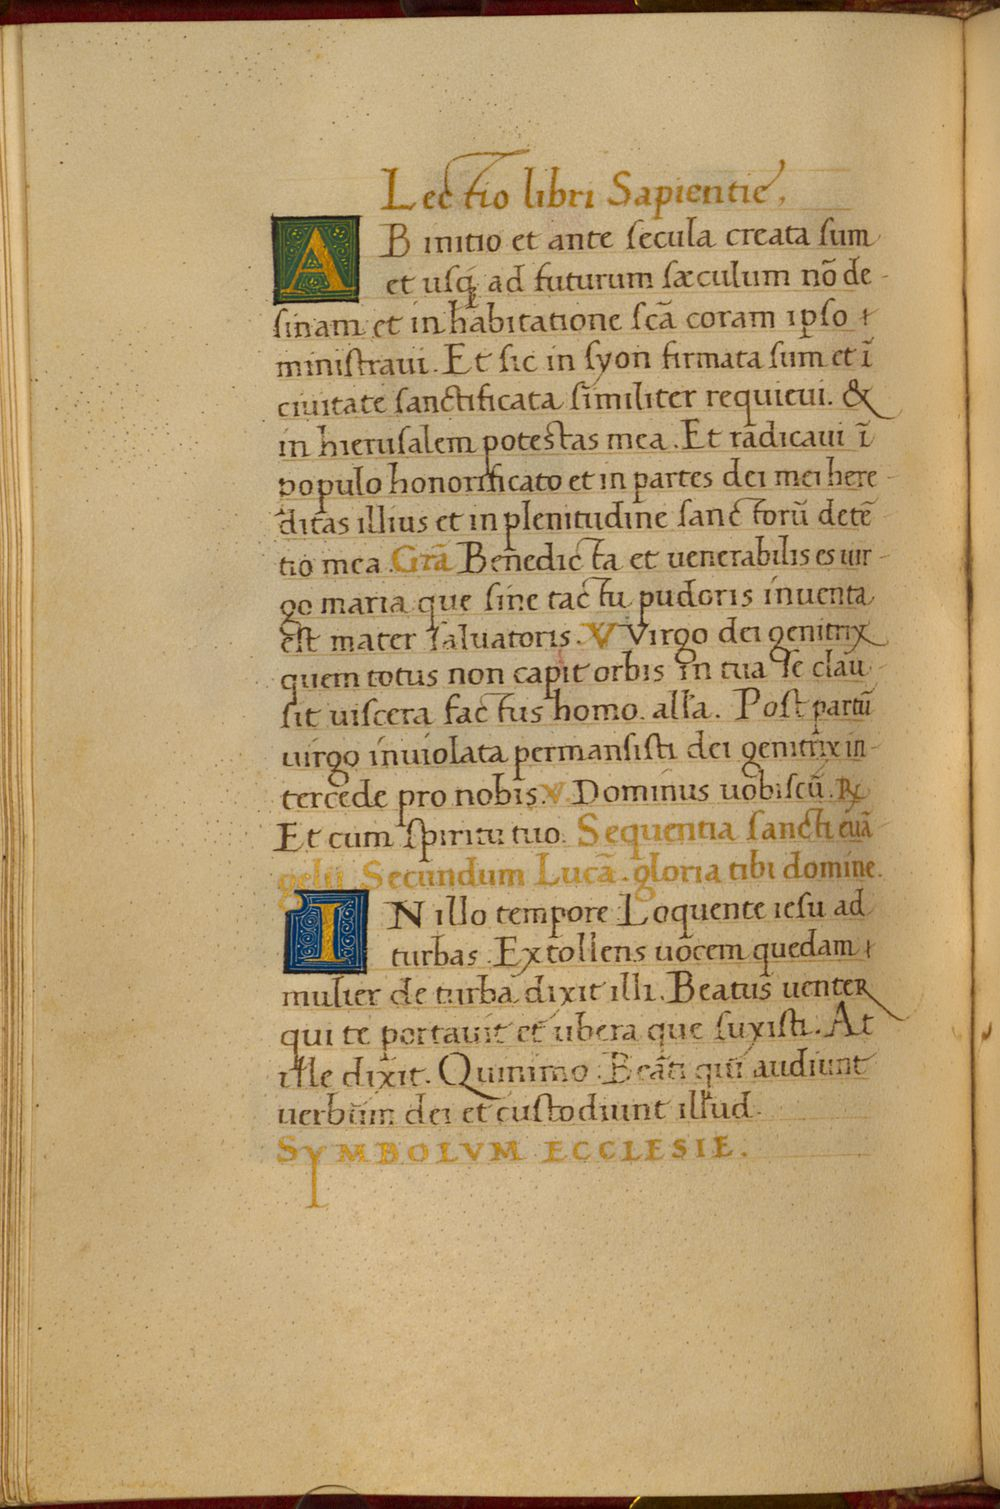 Lectio libri Sapientie.
AB initio et ante secula creata sum
et usq; ad futurum sæculum nō de-
sinam et in habitatione scā coram ipso
ministraui. Et sic in syon firmata sum et ī
ciuitate sanctificata similiter requieui. &
in hierusalem potestas mea. Et radicaui ī
populo honorificato et in partes dei mei here-
ditas illius et in plenitudine sanctorū detē
tio mea. Grā Benedicta et uenerabilis es uir-
go maria que sine tactu pudoris inuenta
est mater saluatoris. V Virgo dei genitrix
quem totus non capit orbis in tua se clau-
sit uiscera factus homo. alla. Post partū
uirgo inuiolata permansisti dei genitrix in-
tercede pro nobis. V. Dominus uobiscū. ℞
Et cum spiritu tuo. Sequentia sancti euā
gelii Secundum Lucā. gloria tibi domine.
IN illo tempore Loquente iesu ad
turbas. Extollens uocem quedam
mulier de turba dixit illi. Beatus uenter
qui te portauit et ubera que suxisti. At
ille dixit. Quinimo. Beati qui audiunt
uerbum dei et custodiunt illud.
SYMBOLVM ECCLESIE.